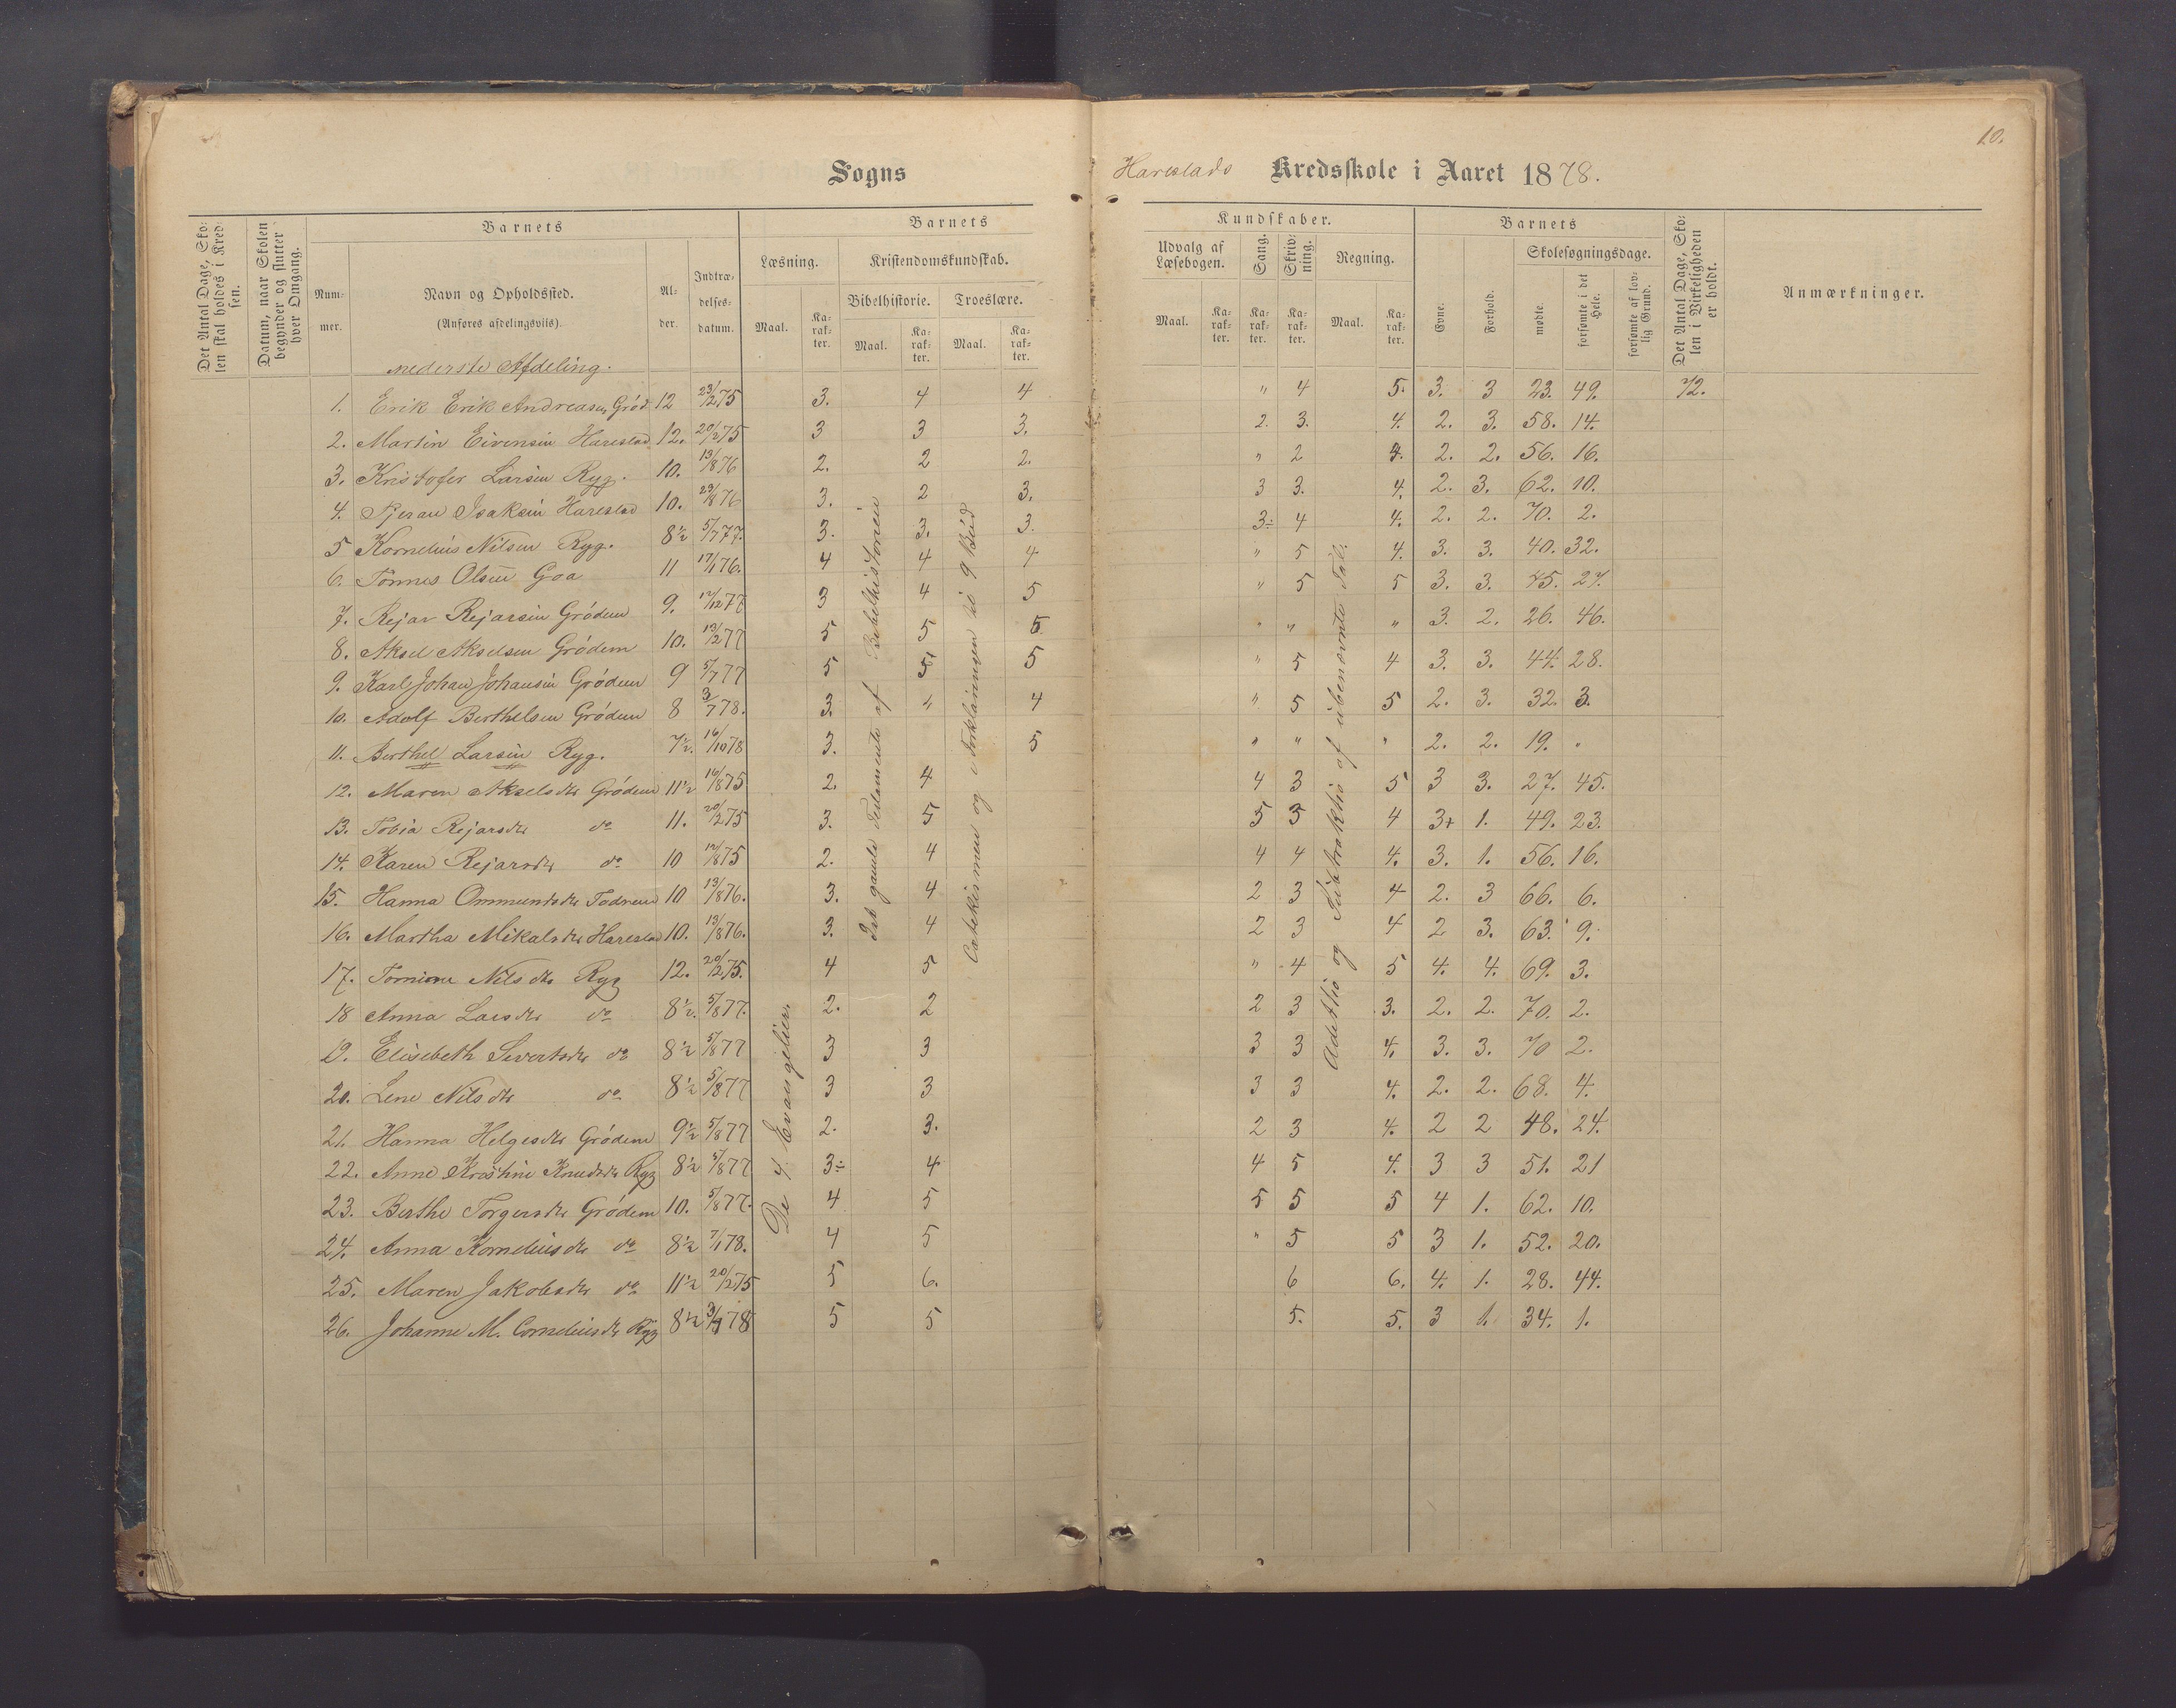 10.
Sogns
Harestads Kredsskole i Aaret 1878.
Det Antal Dage, Skolen skal holdes i Kredsen.
Datum, naar Skolen begynder og slutter hver Omgang.
Barnets
Nummer.
Navn og Opholdssted.
(Anføres afdelingsviis).
Alder.
Indtrædelsesdatum.
Barnets
Læsning.
Maal.
Karakter.
Kristendomskundskab.
Bibelhistorie.
Maal.
Karakter.
Troeslære.
Maal.
Karakter.
Kundskaber.
Udvalg af Læsebogen.
Maal.
Karakter.
Sang.
Karakter.
Skrivning.
Karakter.
Regning.
Maal.
Karakter.
Barnets
Evne.
Forhold.
Skolesøgningsdage.
mødte.
forsømte i det Hele.
forsømte af lovlig Grund.
Det Antal Dage, Skolen i Virkeligheden er holdt.
Anmærkninger.
nederste Afdeling.
1. Erik Erik Andreasen Grød 12 23/2 75 3. 4 4 " 4 5. 3. 3 23. 49. 72.
2. Martin Eivensen Harestad 12. 20/2 75 3 3 3. 2. 3. 4. 2. 3. 58. 14.
3. Kristofer Larsen Ryg. 10. 13/8 76 2. 2 2. " 2 4. 2. 2. 56. 16.
4. Isaksen Harestad 10. 29/8 76 3. 2 3. 3 3. 4. 2. 3. 62. 10.
5 Kornelius Nilsen Ryg. 8½ 5/7 77. 3. 3. 3. 3÷ 4 4. 2. 2. 70. 2.
6. Tønnes Olsen Goa 11 17/1 76. 4 4 4 " 5 4. 3. 3. 40. 32.
7. Rejar Rejarsen Grödem 9. 12/12 77 3 4 5 " 5 5 3. 3. 45. 27.
8. Aksel Akselsen Grödem 10. 13/2 77 5 5 5 " " " 3. 2. 26. 46.
9. Karl Johan Johansen Grödem 9 5/7 77 5 5+ 5 " 5 4 3. 3. 44. 28.
10. Adolf Berthelsen Grödem 8 3/7 78. 3. " 4 " 5 5 2. 3. 32. 3.
11. Berthel Larsen Ryg. 7½. 16/10 78 3. 5 " " " 2. 2. 19. "
12. Maren Akselsdtr Grödem 11½ 16/8 75 2. 4 4 3 5 3 3. 27. 45.
13. Tobia Rejarsdtr do 11. 20/2 75 3. 5 5 5 4 3+ 1. 49. 23.
14. Karen Rejarsdtr do 10 12/8 75 2. 4 4 4 4. 3. 1. 56. 16.
15. Hanna Ommundsdtr Todnem 10 13/8 76. 3. 4 2 3 4 2. 3 66. 6.
16. Martha Mikalsdtr Harestad 10. 13/8 76. 3. 4 2 3 4 2 3. 63. 9.
17. Nilsdtr Ryg 12. 20/2 75. 4 5 " 4 5 4. 4. 69. 3.
18 Anna Larsdtr do 8½. 5/8 77. 2. 2 2 3 3. 2. 2. 70. 2.
19. Elisebeth Sivertsdtr do 8½ 5/8 77 3 3 3 3 4. 3. 3. 70 2.
20. Lene Nilsdtr do 8½ 5/8 77 3 3 3 3 4. 2. 2. 68. 4.
21. Hanna Helgesdtr Grödem 9½ 5/8 77 2. 3. 2 3 4. 2 2 48. 24.
22. Anne Kristine Knudsdtr Ryg 8½ 5/8 77 3÷ 4 4 5 4. 3 3 51. 21
23. Berthe Torgersdtr Grödem 10. 5/8 77. 4 5 5 5 5 4 1. 62. 10.
24. Anna Korneliusdtr do 8½ 7/1 78. 4 5 " 5 5 3 1. 52. 20.
25. Maren Jakobsdtr do 11½ 20/2 75 5 6. 6 6. 4. 1. 28. 44.
26. Johanne M. Corneliusdtr Ryg 8½ 3/7 78 5 5 5. 5. 3 1. 34. 1.
De 4 Evangelier.
Det gamle Testamente af Bibelhistorien
Catekismen og i Forklaringen til 9 Bud
Adittio og Subtraktio af ubenævnte Tal.